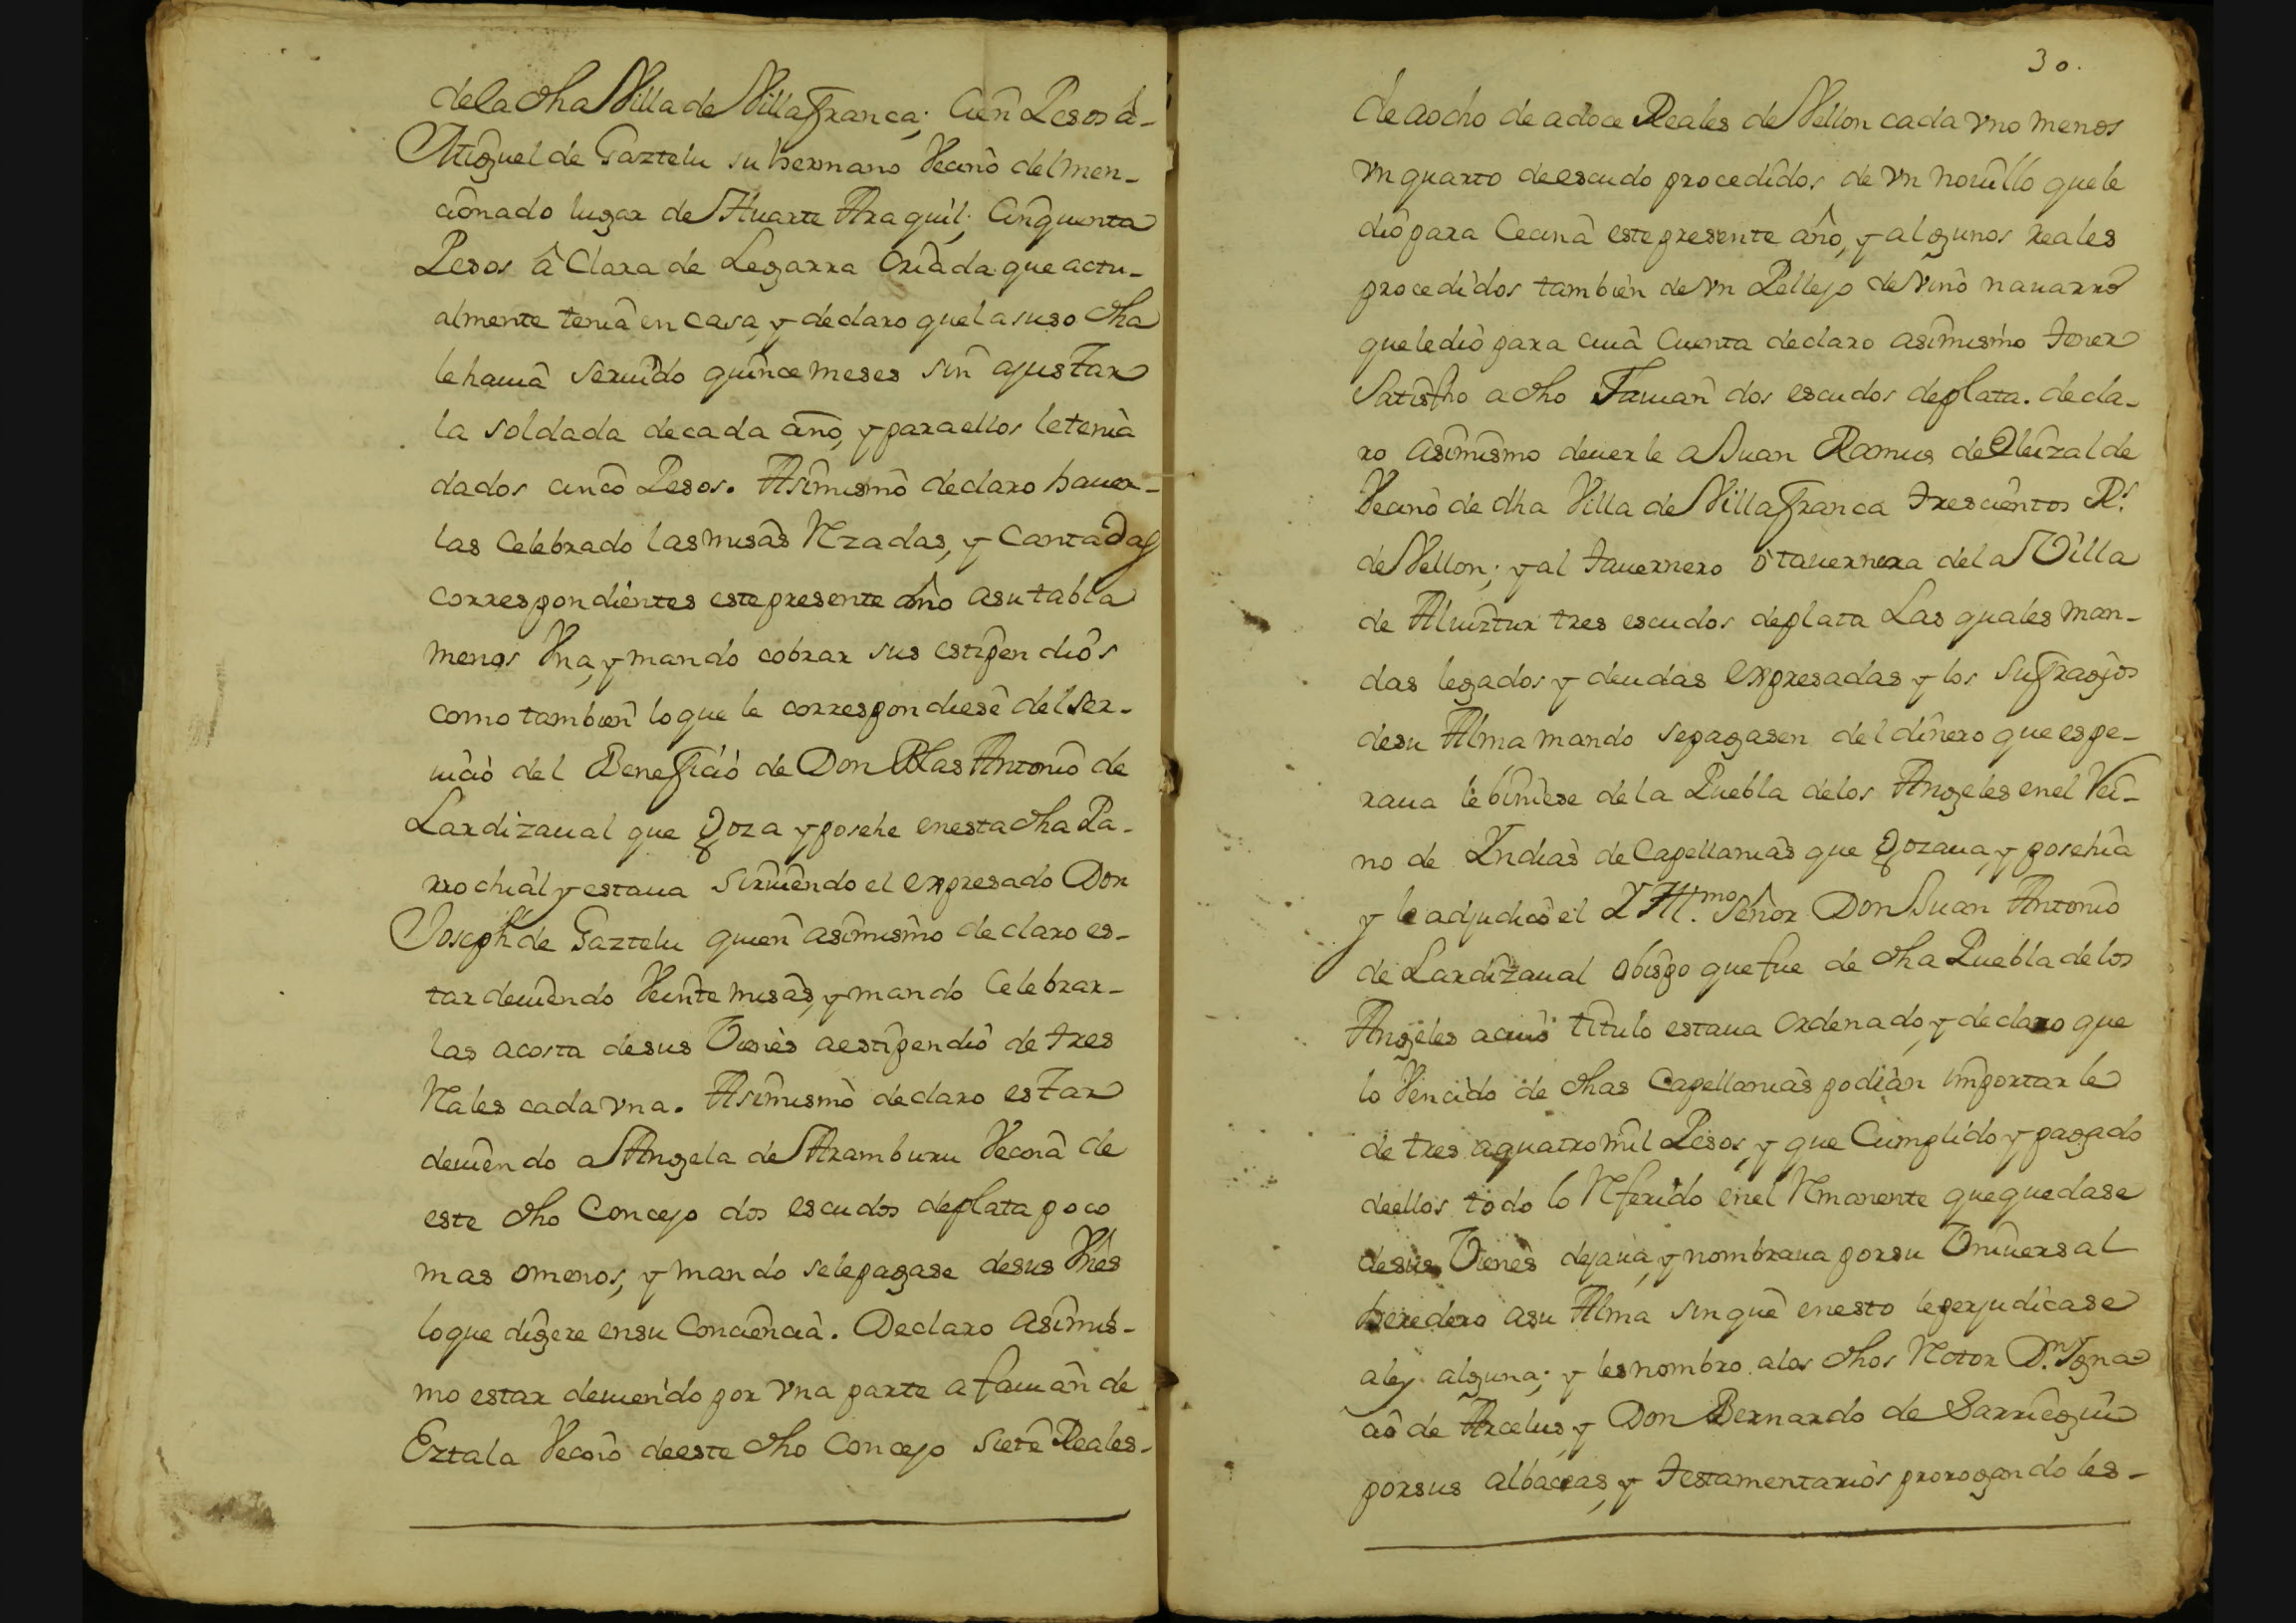 dela dha Villa de Villafranca; Cien Pesos â-
Miguel de Gaztelu su hermano Vecino del men-
cionado lugar de Huarte Araquil; Cinquenta
Pesos â Clara de Legarra Criada que actu-
almente tenia en casa, y declaro que la suso dha
le hauia seruido quince meses sin ajustar
la soldada de cada año, y para ellos le tenia
dados cinco Pesos. Asimismo declaro hauer-
las celebrado las misas Rezadas, y Cantadas
correspondientes este presente año a su tabla
menos Vna, y mando cobrar sus estipendios
como tambien lo que le correspondiese del ser-
uicio del Beneficio de Don Blas Antonio de
Lardizaual que Goza y posehe en esta dha Pa-
rrochial y estaua siruiendo el expresado Don
Joseph de Gaztelu quien asimismo declaro es-
tar deuiendo Veinte misas, y mando Celebrar-
las acosta de sus Vienes a estipendio de tres
Rales cada vna. Asimismo declaro estar
deuiendo a Angela de Aramburu Vecina de
este dho Concejo dos escudos de plata poco
mas omenos, y mando se le pagase de sus Vies
lo que dijere en su Conciencia. Declaro asimis-
mo estar deuiendo por vna parte a famian de
Eztala Vecino de este dho Concejo siete Reales-
30.
de aocho de adoce Reales de Vellon cada vno menos
vn quarto de escudo procedidos de vn nouillo que le
dio para Cecina este presente año, y algunos reales
procedidos tambien de vn Pellejo de vino nauarro
que le dio para cuia Cuenta declaro asimismo tener
Satisfho a dho Famian dos escudos de plata. decla-
ro asimismo deuerle a Juan Ramus de Oleizalde
Vecino de dha Villa de Villafranca trescientos Rs.
de Vellon; y al tauernero ô tauernera de la Villa
de Aluiztur tres escudos de plata Las quales man-
das legados y deudas expresadas y los sufragios
de su Alma mando se pagasen del dinero que espe-
raua le biniese de la Puebla de los Angeles en el Rei-
no de Indias de Capellanias que Gozaua, y posehia
y le adjudico el Yllmo. Señor Don Juan Antonio
de Lardizaual obispo que fue de dha Puebla de los
Angeles a cuio titulo estaua ordenado, y declaro que
lo Vencido de dhas Capellanias podian importarle
de tres a quatro mil Pesos, y que Cumplido y pagado
de ellos todo lo Referido en el Remanente que quedase
de sus Vienes dejaua, y nombraua por su Vniuersal
heredero a su Alma sin que en esto le perjudicase
a ley alguna; y les nombro a los dhos Retor Dn. Igna-
cio de Arcelus, y Don Bernardo de Sarriegui
por sus albaceas, y testamentarios prorogandoles-